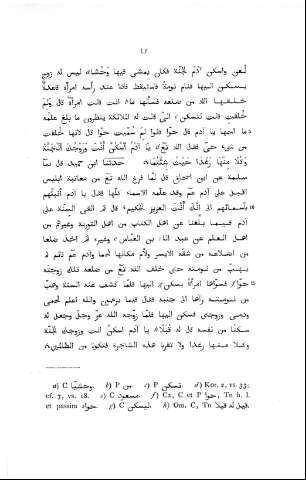 ١٠٢
لُعن واسكن آدم الجنّة فكان يمشى فيها وحْشًا a ليس له زوج
يسكن اليها فنام نومة فاستيقظ فاذا عند رأسه امرأة قاعدة b
خلقها الله من ضلعه فسألها ما انت قالت امرأة قال ولِمَ
خُلقت قالت لتسكن c الىّ قالت له الملائكة ينظرون ما بلغ علمه
ما اسمها يا آدم قال حوّا قالوا لِمَ سُمّيت حوّا قال لانها خُلقت
من شىء حىّ فقال الله تع d يَا آدَمُ اسْكُنْ أَنْتَ وَزَوْجُكَ الْجَنَّةَ
وَكُلَا مِنْهَا رَغَدًا حَيْثُ شِئْتُمَا حدثنا ابن حميد قال نما
سلمة عن ابن اسحاق قال لما فرغ الله تع من معاتبة ابليس
اقبل على آدم عم وقد علّمه الاسماء كلّها فقال يا آدم أَنْبِئْهُمْ
بِأَسْمَائِهِمْ الى إِنَّكَ أَنْتَ الْعَلِيمُ الْحَكِيمُ قال ثم القى السنة على
آدم فيما بلغنا عن اهل الكتاب من اهل التورية وغيرهم من
اهل العلم عن عبد الله بن العبّاس e وغيره ثم اخذ ضلعا
من اضلاعه من شقّه الايسر ولأم مكانها لحما وآدم عم نائم لم
يهبّ من نومته حتى خلف الله تع من ضلعه تلك زوجته
حوّا f فسوّاها امرأة يسكن g اليها فلما كشف عنه السنة وهبّ
من نومته رآها الى جنبه فقال فيما يزعمون والله اعلم لحمى
ودمى وزوجتى فسكن اليها فلما زوّجه الله عزّ وجلّ وجعل له
سكنا من نفسه قال له قُبُلًا h يا آدم اسكن انت وزوجك الجنّة
وكلا منها رغدا ولا تقربا هذه الشجرة فتكونا من الظالمين
a) C وحشيًا. b) P من. c) P تسكن. d) Kor. 2, vs. 33;
cf. 7, vs. 18. e) C مسعود. f) Ca, C et P حوا, Tn h. l.
et passim حواء. g) C ليسكن. h) Om. C, Tn قيل له قبلا.